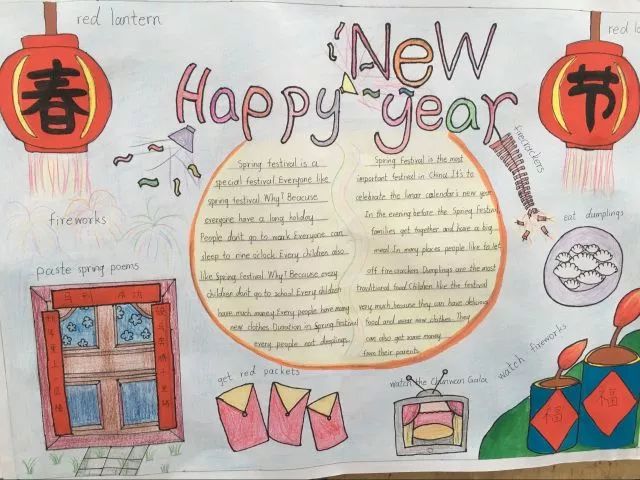 red lantern
red la
春
New
节
Happy year
firecrackers
Spring festival is a
special festival. Everyone like
spring festival. Why? Beacuse
everyone have a long holiday.
People don't go to wark. Everyone can
sleep to nine oclock. Every children also
like Spring Festival. Why? Because every
children don't go to school. Every children
have much money. Every people have many
new clothes. Dunation in Spring Festival
every people eat dumplings.
Spring festival is the most
important festival in China. It's to
celebrate the lunar calendar's new year.
In the evening before the Spring Festival
families get together and have a big
meal. In many places people like to let
off firecrackers. Dumplings are the most
traditional food. Children like the festival
very much because they can have delicious
food and wear new clothes. They
can also get some money
from their parents.
fireworks
eat dumplings
paste spring poems
get red packets
watch the Chunwan Gala
watch fireworks
福
福